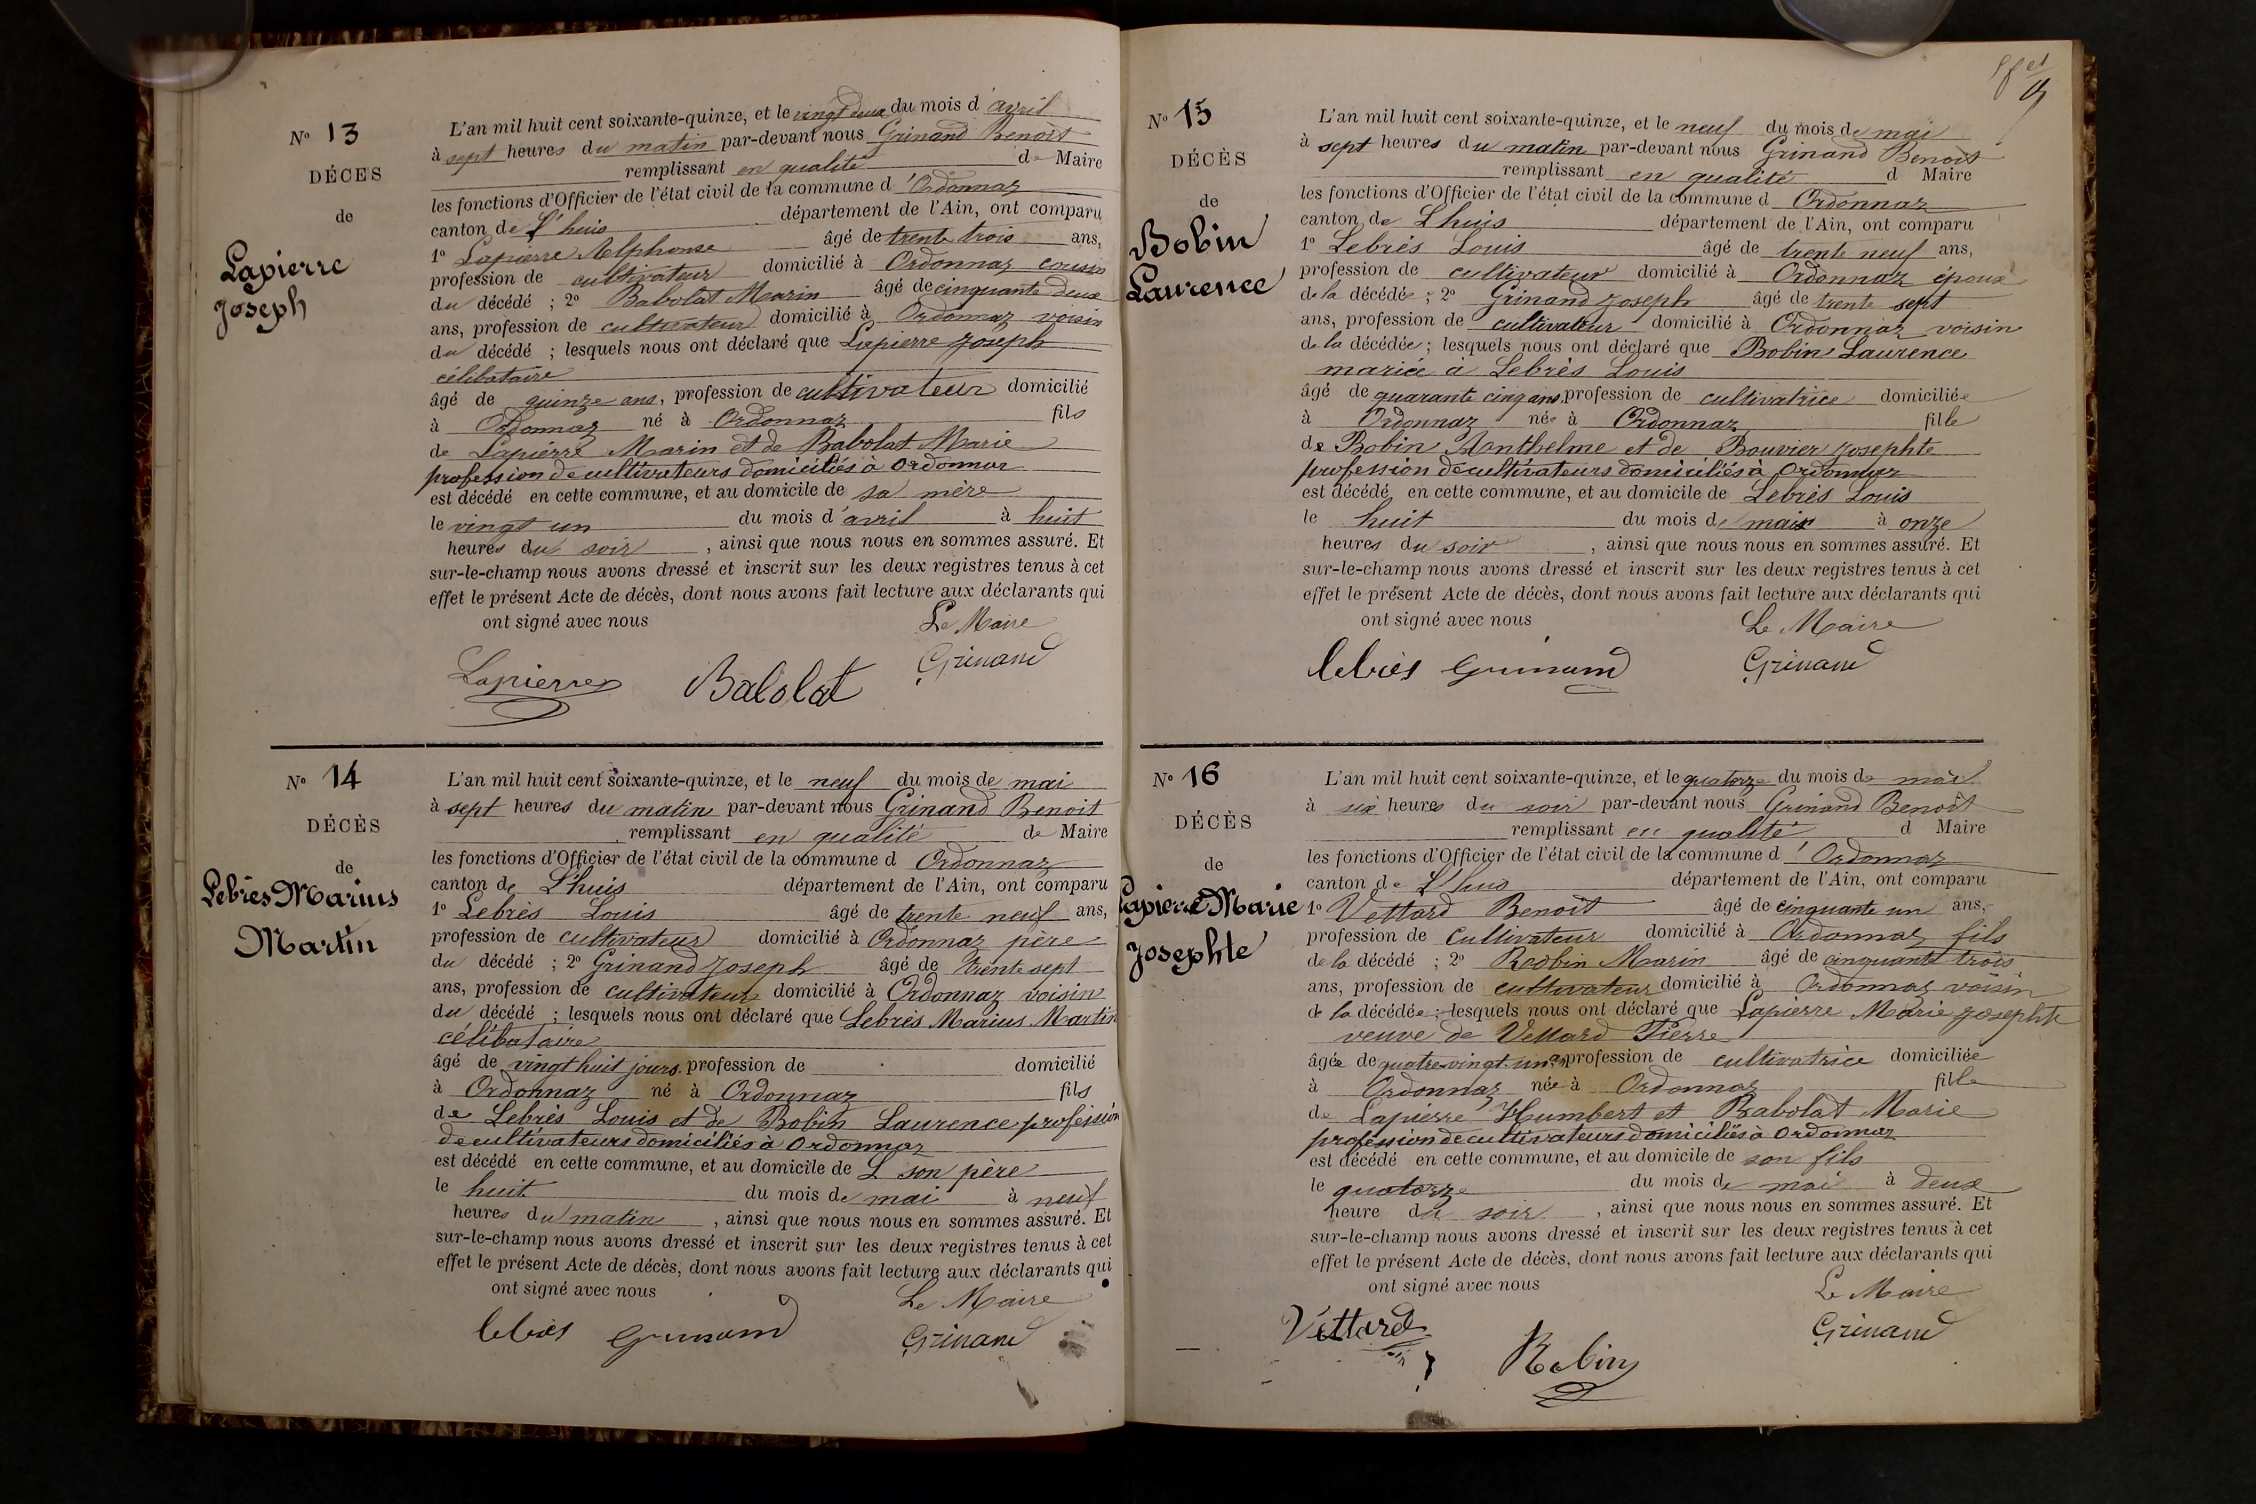 N° 13
DÉCES
de
Lapierre
Joseph
L'an mil huit cent soixante-quinze, et le vingt deux du mois d'avril
à sept heures du matin par-devant nous Grinand Benoit
remplissant en qualité de Maire
les fonctions d'Officier de l'état civil de la commune d'Ordonnaz
canton de L'huis département de l'Ain, ont comparu
1° Lapierre Alphonse âgé de trente trois ans,
profession de cultivateur domicilié à Ordonnaz cousin
du décédé ; 2° Babolat Marin âgé de cinquante deux
ans, profession de cultivateur domicilié à Ordonnaz voisin
du décédé ; lesquels nous ont déclaré que Lapierre Joseph
célibataire
âgé de quinze ans, profession de cultivateur domicilié
à Ordonnaz né à Ordonnaz fils
de Lapierre Marin et de Babolat Marie
profession de cultivateurs domiciliés à Ordonnaz
est décédé en cette commune, et au domicile de sa mère
le vingt un du mois d'avril à huit
heures du soir , ainsi que nous nous en sommes assuré. Et
sur-le-champ nous avons dressé et inscrit sur les deux registres tenus à cet
effet le présent Acte de décès, dont nous avons fait lecture aux déclarants qui
ont signé avec nous
Le Maire
Lapierre Babolat Grinand
N° 14
DÉCÈS
de
Lebrès Marius
Martin
L'an mil huit cent soixante-quinze, et le neuf du mois de mai
à sept heures du matin par-devant nous Grinand Benoit
remplissant en qualité de Maire
les fonctions d'Officier de l'état civil de la commune d Ordonnaz
canton de L'huis département de l'Ain, ont comparu
1° Lebrès Louis âgé de trente neuf ans,
profession de cultivateur domicilié à Ordonnaz père
du décédé ; 2° Grinand Joseph âgé de trente sept
ans, profession de cultivateur domicilié à Ordonnaz voisin
du décédé ; lesquels nous ont déclaré que Lebrès Marius Martin
célibataire
âgé de vingt huit jours profession de domicilié
à Ordonnaz né à Ordonnaz fils
de Lebrès Louis et de Bobin Laurence profession
de cultivateurs domiciliés à Ordonnaz
est décédé en cette commune, et au domicile de L son père
le huit du mois de mai à neuf
heures du matin , ainsi que nous nous en sommes assuré. Et
sur-le-champ nous avons dressé et inscrit sur les deux registres tenus à cet
effet le présent Acte de décès, dont nous avons fait lecture aux déclarants qui
ont signé avec nous
Le Maire
lebrès Grinand Grinand
N° 15
DÉCÈS
de
Bobin
Laurence
L'an mil huit cent soixante-quinze, et le neuf du mois de mai
à sept heures du matin par-devant nous Grinand Benoit
remplissant en qualité d Maire
les fonctions d'Officier de l'état civil de la commune d Ordonnaz
canton de Lhuis département de l'Ain, ont comparu
1° Lebrès Louis âgé de trente neuf ans,
profession de cultivateur domicilié à Ordonnaz époux
de la décédée ; 2° Grinand Joseph âgé de trente sept
ans, profession de cultivateur domicilié à Ordonnaz voisin
de la décédée ; lesquels nous ont déclaré que Bobin Laurence
mariée à Lebrès Louis
âgé de quarante cinq ans, profession de cultivatrice domiciliée
à Ordonnaz née à Ordonnaz fille
de Bobin Anthelme et de Bouvier Josephte
profession de cultivateurs domiciliés à Ordonnaz
est décédé en cette commune, et au domicile de Lebrès Louis
le huit du mois de mai à onze
heures du soir , ainsi que nous nous en sommes assuré. Et
sur-le-champ nous avons dressé et inscrit sur les deux registres tenus à cet
effet le présent Acte de décès, dont nous avons fait lecture aux déclarants qui
ont signé avec nous
Le Maire
lebrès Grinand Grinand
N° 16
DÉCÈS
de
Lapierre Marie
Josephte
L'an mil huit cent soixante-quinze, et le quatorze du mois de mai
à six heures du soir par-devant nous Grinand Benoit
remplissant en qualité d Maire
les fonctions d'Officier de l'état civil de la commune d'Ordonnaz
canton de L'huis département de l'Ain, ont comparu
1° Vettard Benoit âgé de cinquante un ans,
profession de Cultivateur domicilié à Ordonnaz fils
de la décédé ; 2° Robin Marin âgé de cinquante trois
ans, profession de cultivateur domicilié à Ordonnaz voisin
de la décédée ; lesquels nous ont déclaré que Lapierre Marie Josephte
veuve de Vettard Pierre
âgée de quatre-vingt un ans profession de cultivatrice domiciliée
à Ordonnaz née à Ordonnaz fille
de Lapierre Humbert et Babolat Marie
profession de cultivateurs domiciliés à Ordonnaz
est décédé en cette commune, et au domicile de son fils
le quatorze du mois de mai à deux
heure du soir , ainsi que nous nous en sommes assuré. Et
sur-le-champ nous avons dressé et inscrit sur les deux registres tenus à cet
effet le présent Acte de décès, dont nous avons fait lecture aux déclarants qui
ont signé avec nous
Le Maire
Vettard Robin Grinand